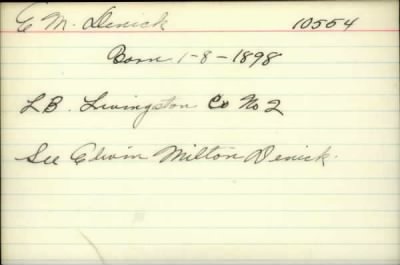 E M. Denick 10554
Born 1-8-1898
L B. Livingston Co No 2
See Elwin Milton Denick.